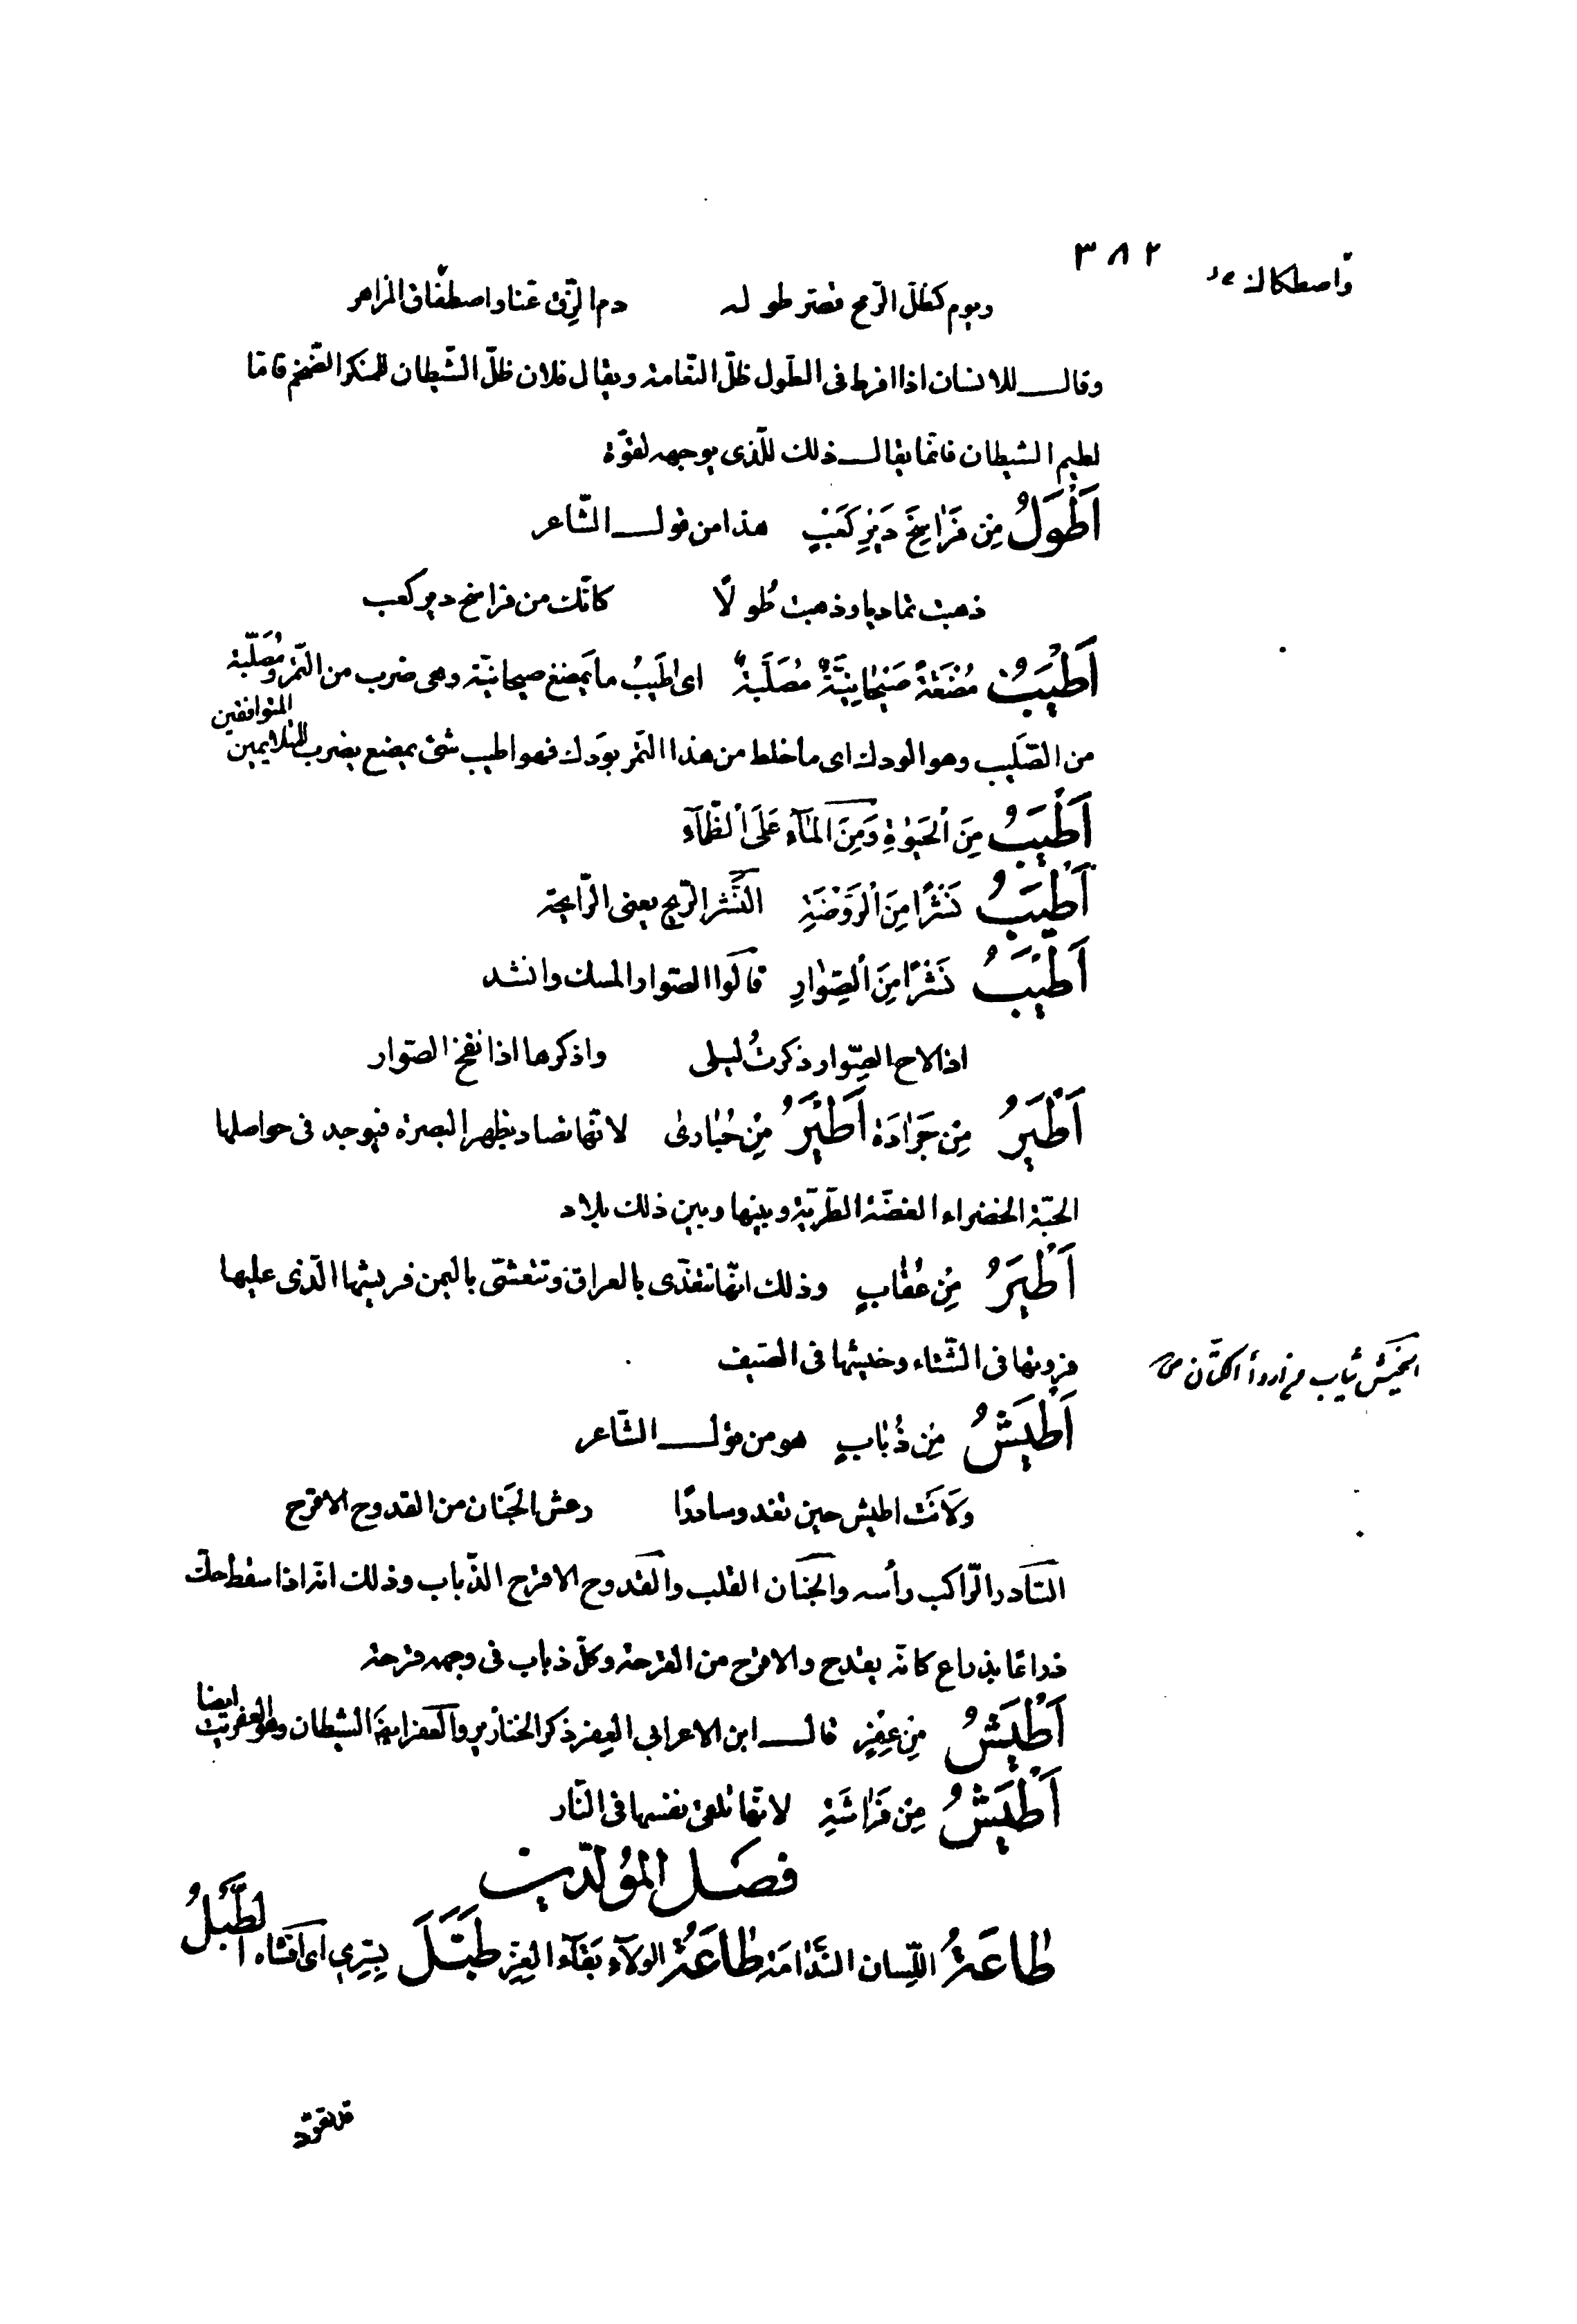 ٣٨٢
وّاصطكاك
ويوم كظلّ الرّمح قصّر طوله دم الزّقّ عنّا واصطفّاق المزاهر
وقال للانسان اذا افرط فى الطّول ظلّ النّعامة ويقال فلان ظلّ الشّيطان للمنكر الضّخم فامّا
لطيم الشيطان فانّما يقال ذلك للّذى بوجهه لقوّة
اَطْوَلُ مِنْ فَرَاسِخَ دَيْرِ كَعْبٍ هذا من قول الشّاعر
ذهبت تماديا وذهبت طُولًا كانّك من فراسخ دير كعب
اَطْيَبُ مُضْغَةً صَيْحَانِيَّةٌ مُصَلَّبَةٌ اى اَطيَبُ ما يَمضغ صيحانيّة وهى ضرب من التّمر ومُصَلّبة
من الصّليب وهو الودك اى ما خلط من هذا التّمر بوَدك فهو اطيب شئ يمضغ يضرب للمتلايمين المتوافقين
اَطْيَبُ مِنَ الْحَيٰوةِ وَمِنَ الْمَآءِ عَلَى الْظَّمَآءِ
اَطْيَبُ نَشْرًا مِنَ الْرَّوْضَةِ النَّشر الرّيح يعنى الرّايحة
اَطْيَبُ نَشْرًا مِنَ الْصِّوَارِ قالوا الصّوار المسك وانشد
اذا لاح الصِّوار ذكرتُ ليلى واذكرها اذا نفخ الصّوار
اَطْيَرُ مِنْ جَرَادَة اَطْيَرُ مِنْ حُبَارىٰ لانّها تصاد بظهر البصرة فيوجد فى حواصلها
الحبّة الخضراء الغضّة الطّريّة وبينها وبين ذلك بلاد
اَطْيَرُ مِنْ عُقَابٍ وذلك انّها تتغذّى بالعراق وتتعشّى باليمن فريشها الّذى عليها
فروتها فى الشّتاء وخيشها فى الصّيف
الخَيش ثياب من اردأ الكتّان
اَطْيَشُ مِنْ ذُبَابٍ هو من قول الشّاعر
ولَاَنْتَ اطيش حين تغدو سادرًا رعش الجَنان من القدوح الاقرح
السّادر الرّاكب رأسه والجَنان القلب والقدوح الاقرح الذّباب وذلك انّه اذا سقط حكّ
ذراعًا بذراع كانّه يقدح والاقرح من القرحة وكلّ ذباب فى وجهه قرحة
اَطْيَشُ مِنْ عِفْرٍ قال ابن الاعرابى العِفر ذكر الخنازير والعفر ايضًا الشيطان وهو العفريت ايضا
اَطْيَشُ مِنْ فَرَاشَةٍ لانّها تلقى نفسها فى النّار
فصل المُولّدين
طَاعَةُ اللّسان النّدَامَة طَاعَةُ الولَآءِ بَقَآءُ العِزِّ طَبَّلَ بِسِرِّي اى اَفشَاه الطَّبْلُ
قد تعوّد